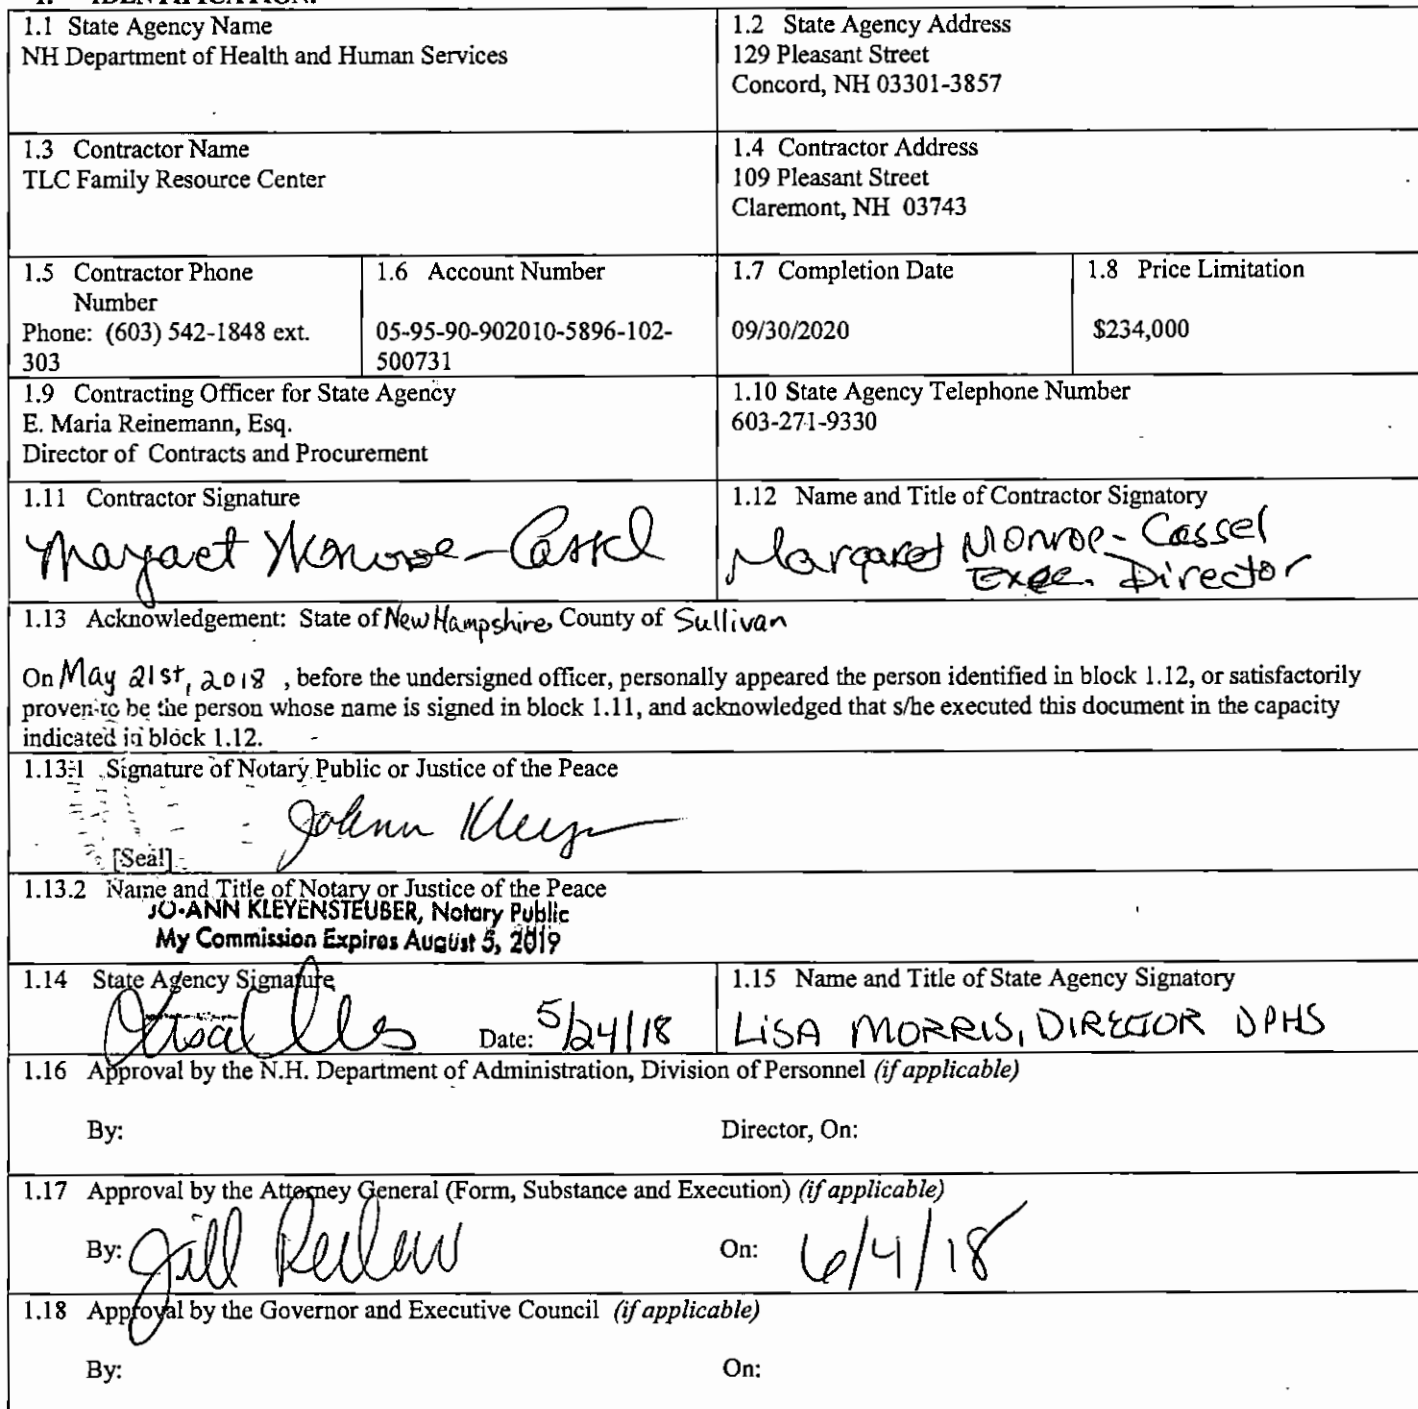 1. IDENTIFICATION.
1.1 State Agency Name
NH Department of Health and Human Services
1.2 State Agency Address
129 Pleasant Street
Concord, NH 03301-3857
1.3 Contractor Name
TLC Family Resource Center
1.4 Contractor Address
109 Pleasant Street
Claremont, NH 03743
1.5 Contractor Phone
Number
Phone: (603) 542-1848 ext.
303
1.6 Account Number
05-95-90-902010-5896-102-
500731
1.7 Completion Date
09/30/2020
1.8 Price Limitation
$234,000
1.9 Contracting Officer for State Agency
E. Maria Reinemann, Esq.
Director of Contracts and Procurement
1.10 State Agency Telephone Number
603-271-9330
1.11 Contractor Signature
Margaret Monroe-Cassel
1.12 Name and Title of Contractor Signatory
Margaret Monroe-Cassel
Exec. Director
1.13 Acknowledgement: State of New Hampshire, County of Sullivan
On May 21st, 2018 , before the undersigned officer, personally appeared the person identified in block 1.12, or satisfactorily
proven to be the person whose name is signed in block 1.11, and acknowledged that s/he executed this document in the capacity
indicated in block 1.12.
1.13.1 Signature of Notary Public or Justice of the Peace
[Seal]
1.13.2 Name and Title of Notary or Justice of the Peace
JO-ANN KLEYENSTEUBER, Notary Public
My Commission Expires August 5, 2019
1.14 State Agency Signature
Date: 5/24/18
1.15 Name and Title of State Agency Signatory
LISA MORRIS, DIRECTOR DPHS
1.16 Approval by the N.H. Department of Administration, Division of Personnel (if applicable)
By: Director, On:
1.17 Approval by the Attorney General (Form, Substance and Execution) (if applicable)
By: Jill On: 6/4/18
1.18 Approval by the Governor and Executive Council (if applicable)
By: On: